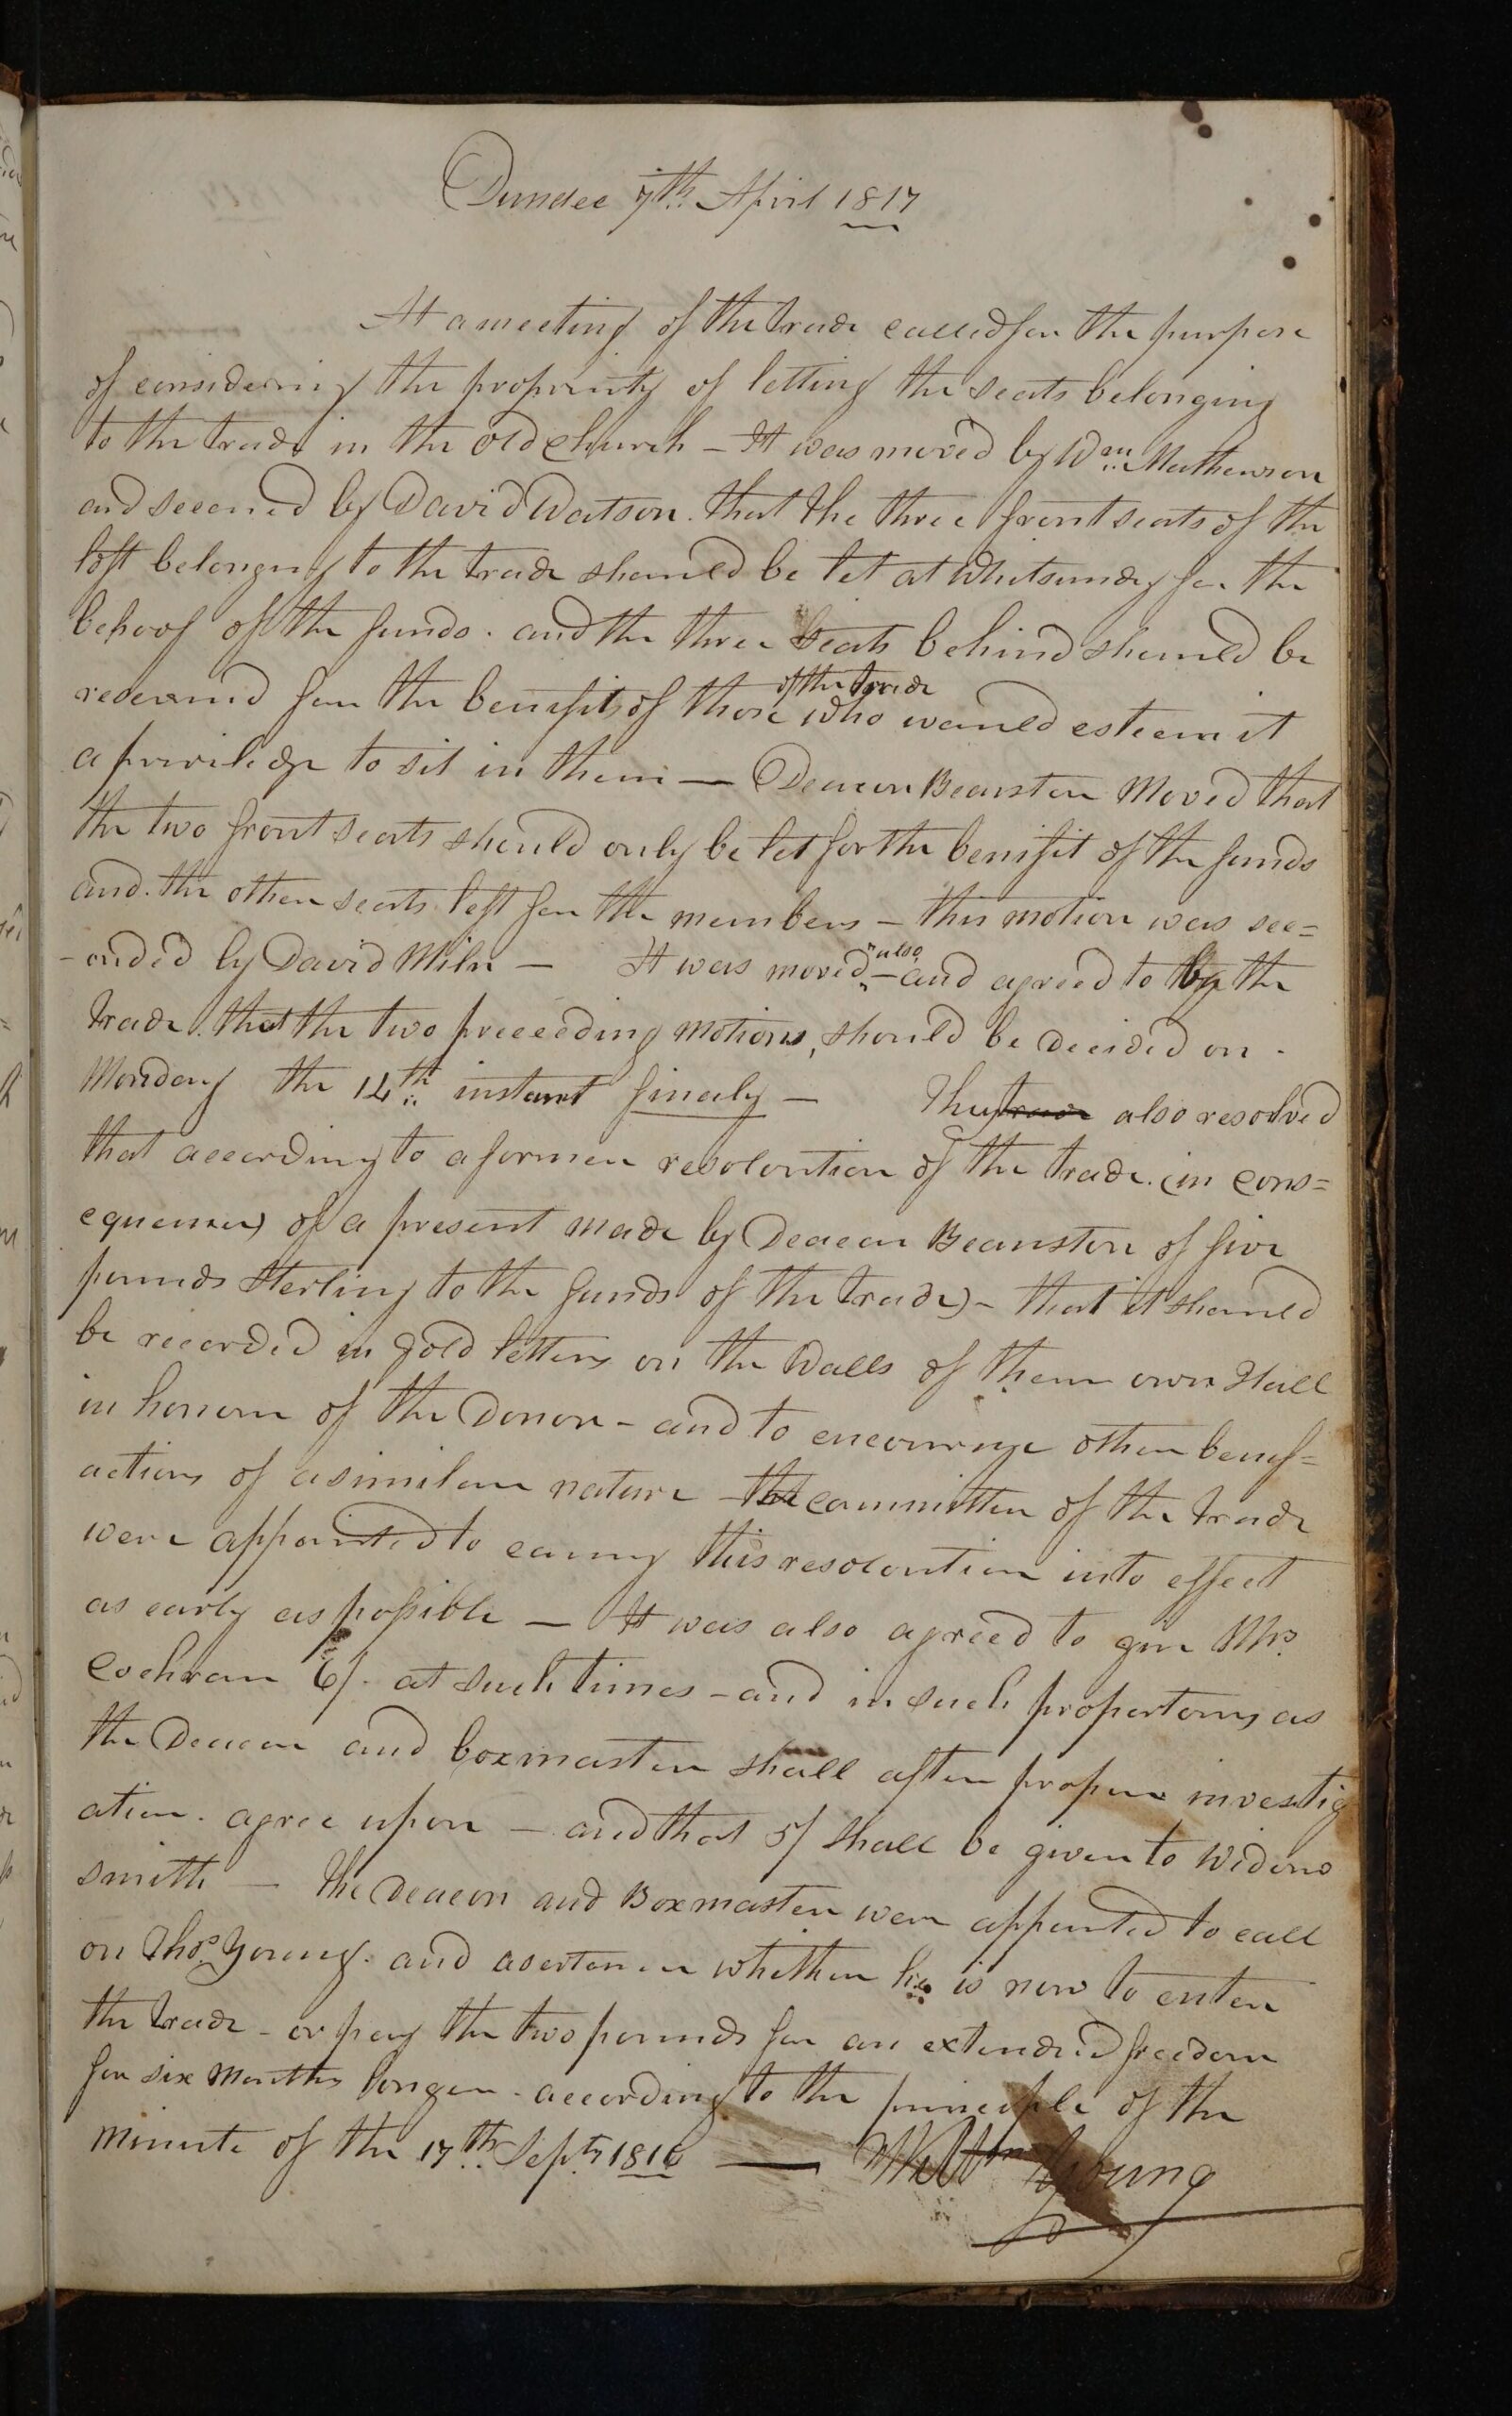 Dundee 7th. April 1817
At a meeting of the trade called for the purpose
of considering the propriety of letting the seats belonging
to the trade in the old church – It was moved by Wm. Mathewson
and seconed by David Watson. that the three front seats of the
loft belonging to the trade should be let at Whitsunday for the
behoof of the funds. and the three seats behind should be
reserved for the benifit of those of the trade who would esteem it
a priviledge to sit in them — Deacon Beanston Moved that
the two front seats should only be let for the benifit of the funds
and. the other seats left for the members – this motion was sec=
-onded by David Miln — It was moved also – and agreed to by the
trade. that the two preceeding motions, should be decided on.
Monday the 14th. instant finaly — They trade also resolved
that according to a former resoloution of the trade. (in cons=
equence) of a present made by Deacon Beanston of five
pounds Sterling to the funds of the trade) – that it should
be recorded in gold letters on the Walls of their own Hall
in honour of the Donor – and to encourage other benef=
actions of a similar nature – the committee of the trade
were appointed to carry this resoloution into effect
as early as possible — It was also agreed to give Mrs.
Cochran 6/. at such times – and in such proportions as
the Deacon and boxmaster shall after proper investig
ation. agree upon – and that 5/ shall be given to Widow
Smith — The Deacon and Boxmaster were appointed to call
on Thos. Young. and asertain whither he is now to enter
the trade – or pay the two pounds for an extended freedom
for six Months longer. according to the principle of the
Minute of the 17th. Sept. 1816 — William Young